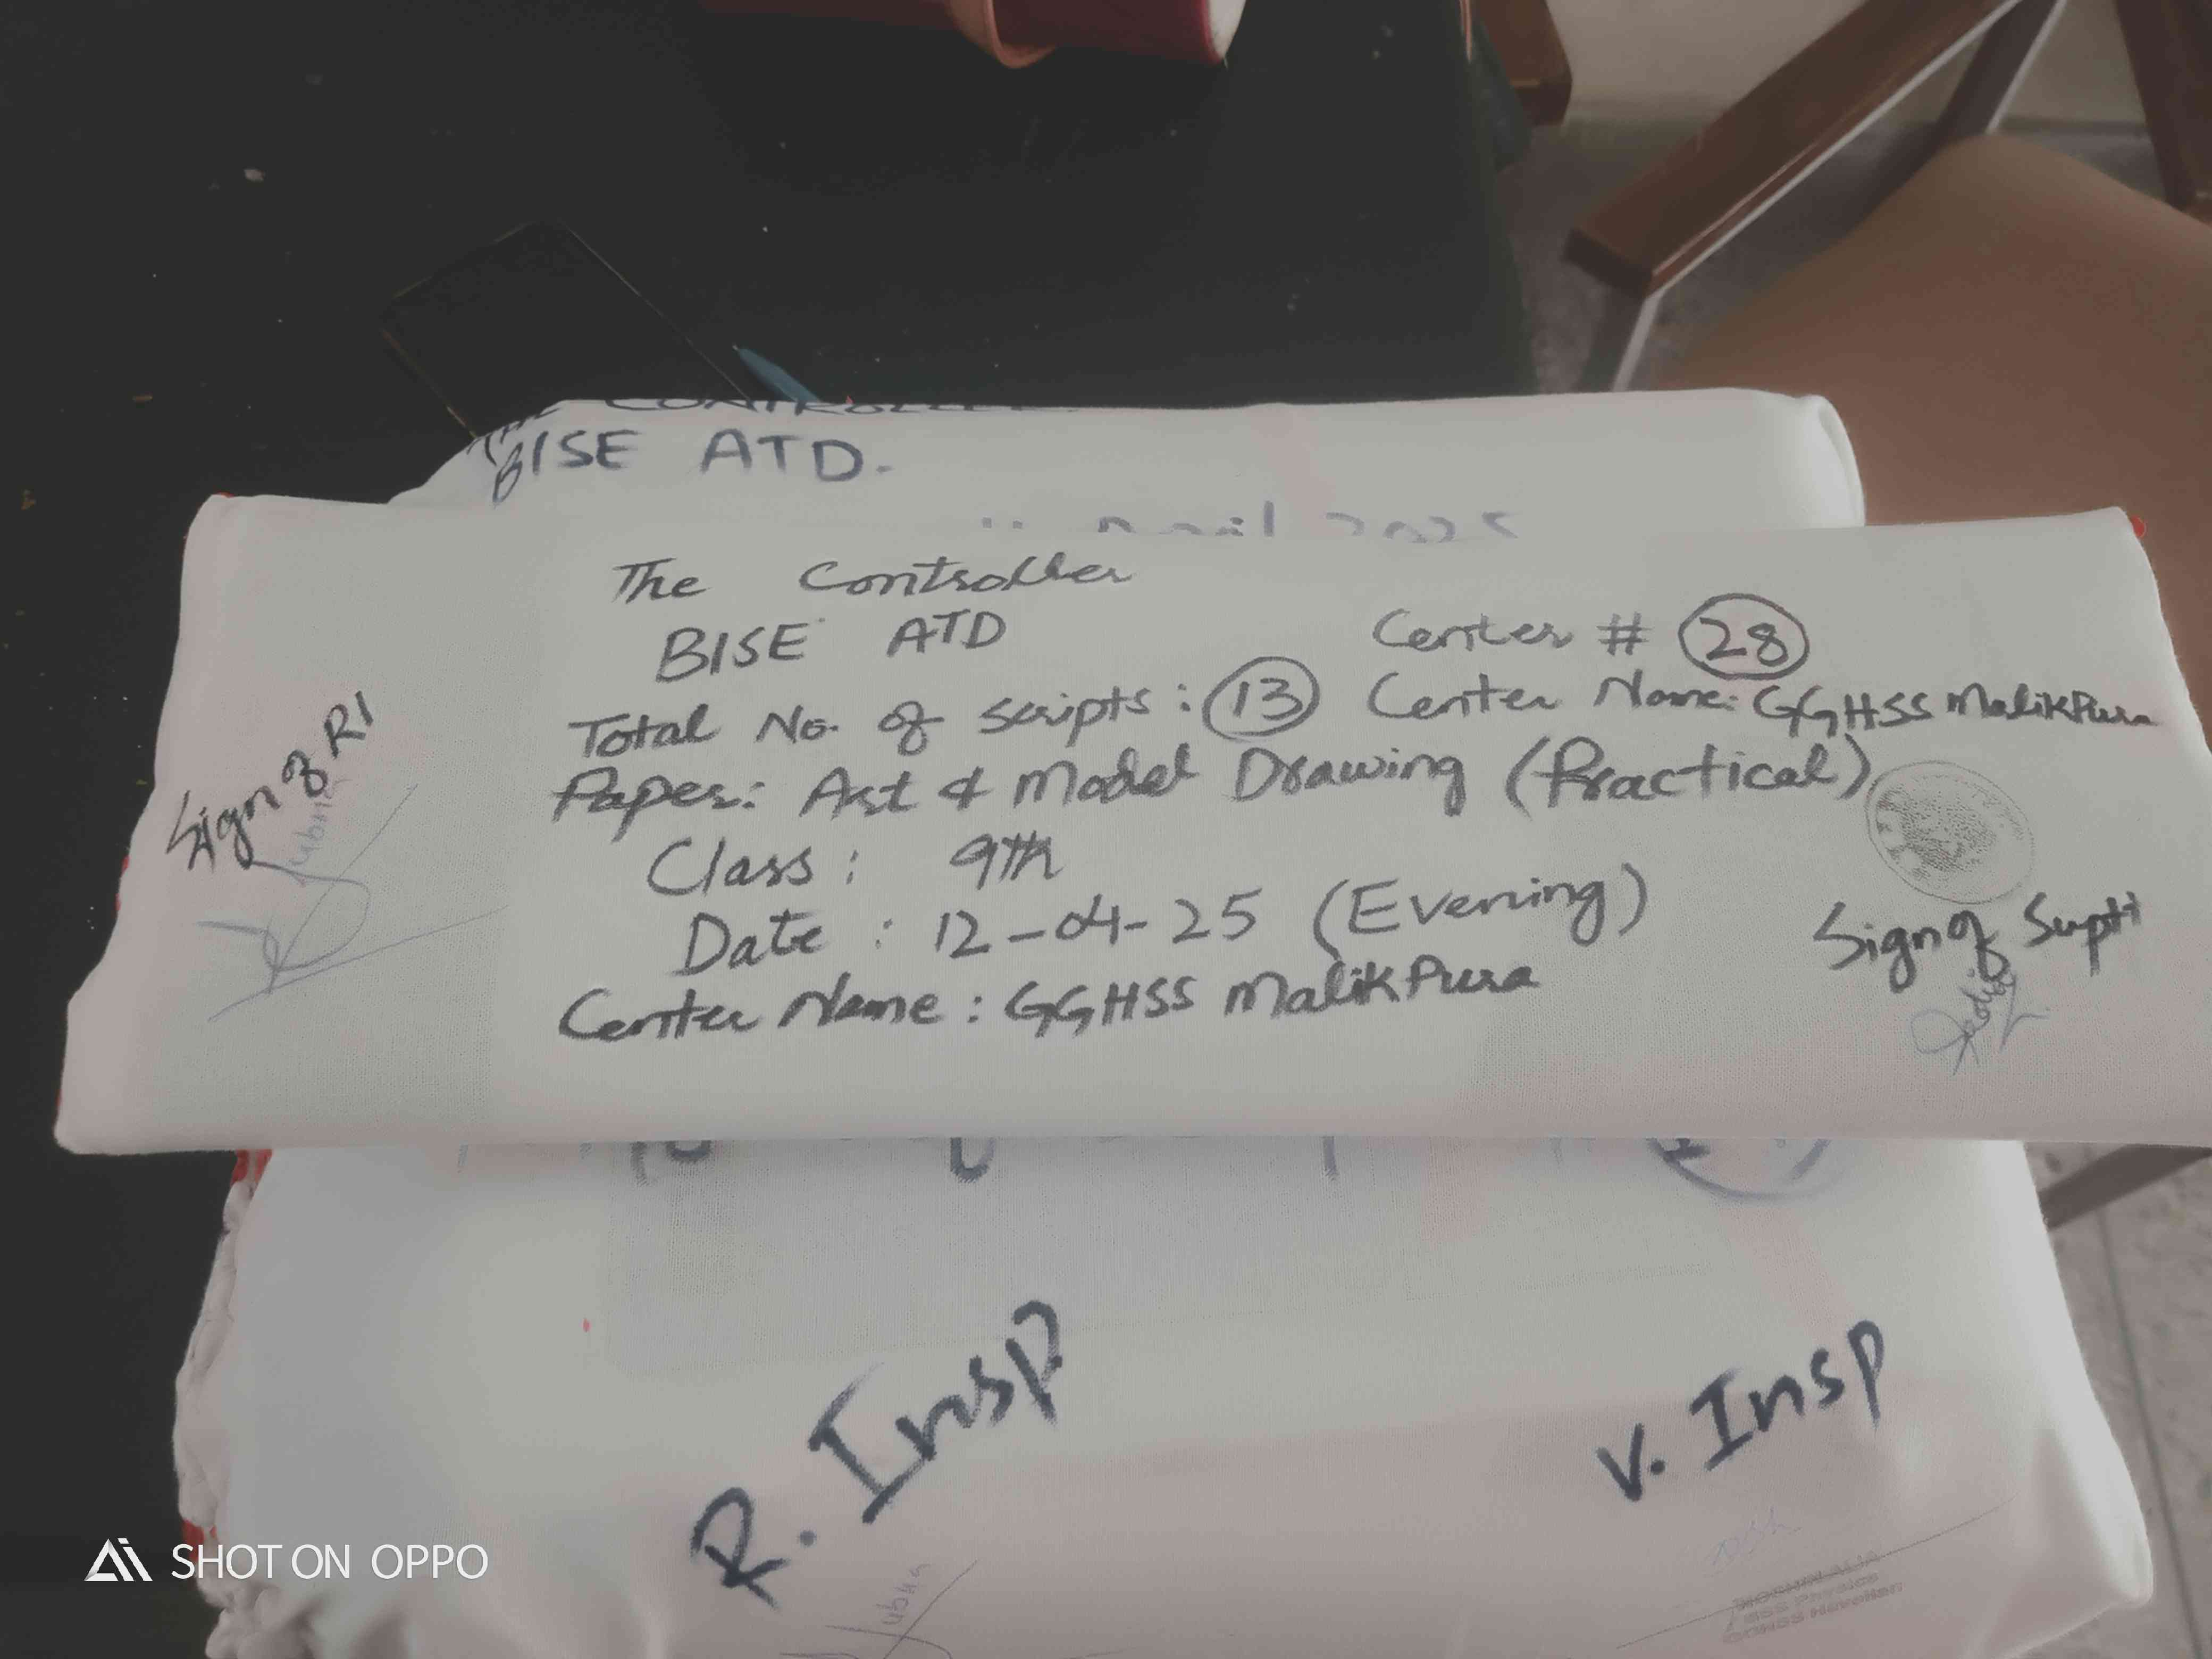 BISE ATD.
The Controller
BISE ATD
Center # 28
Total No. of scripts: 13 Center Name: GGHSS MalikPura
Paper: Art & Model Drawing (Practical)
Class: 9th
Date: 12-04-25 (Evening)
Center Name: GGHSS MalikPura
Sign of RI
Sign of Supti
R. Insp
V. Insp
SSS Physics
SHOT ON OPPO